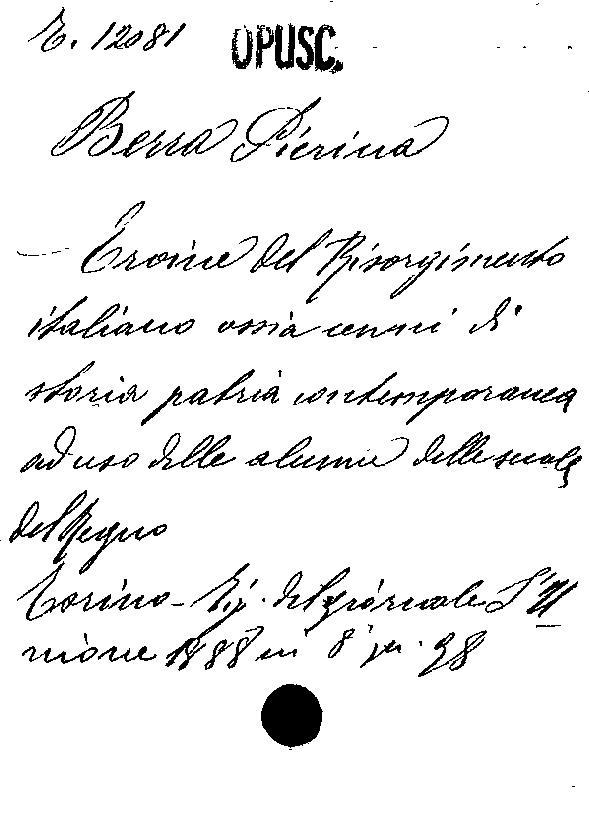 E. 12081 OPUSC.
Berra Pierina
— Eroine del Risorgimento
italiano ossia cenni di
storia patria contemporanea
ad uso delle alunne delle scuole
del Regno
Torino - Tip. del giornale L'U
nione 1888 in 8° pp. 98